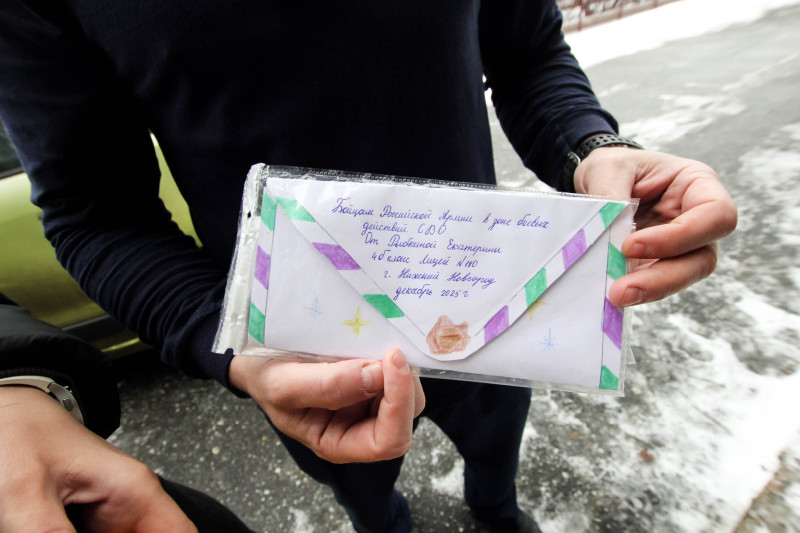 Бойцам Российской Армии в зоне боевых
действий СВО
От Рыбкиной Екатерины
4б класс Лицей №180
г. Нижний Новгород
декабрь 2025 г